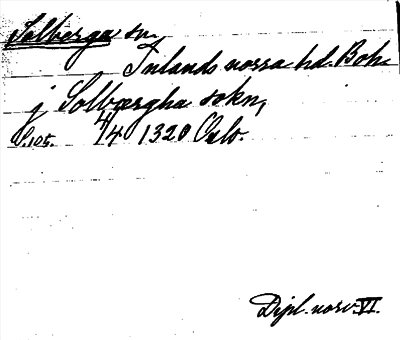 Solberga sn,
Inlands norra hd. Boh.
j Solbærgha sokn,
S. 105. 4/4 1320 Oslo.
Dipl. norv. VI.